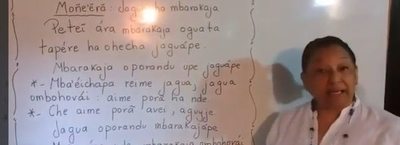 Moñe'ẽrã: Jagua ha mbarakaja
Peteĩ ára mbarakaja oguata
tapére ha ohecha jaguápe.
Mbarakaja oporandu upe jaguápe
*- Mba'éichapa reime jagua, jagua
ombohovái: aime porã ha nde
*- Che aime porã avei, aguyje
Jagua oporandu mbarakajápe